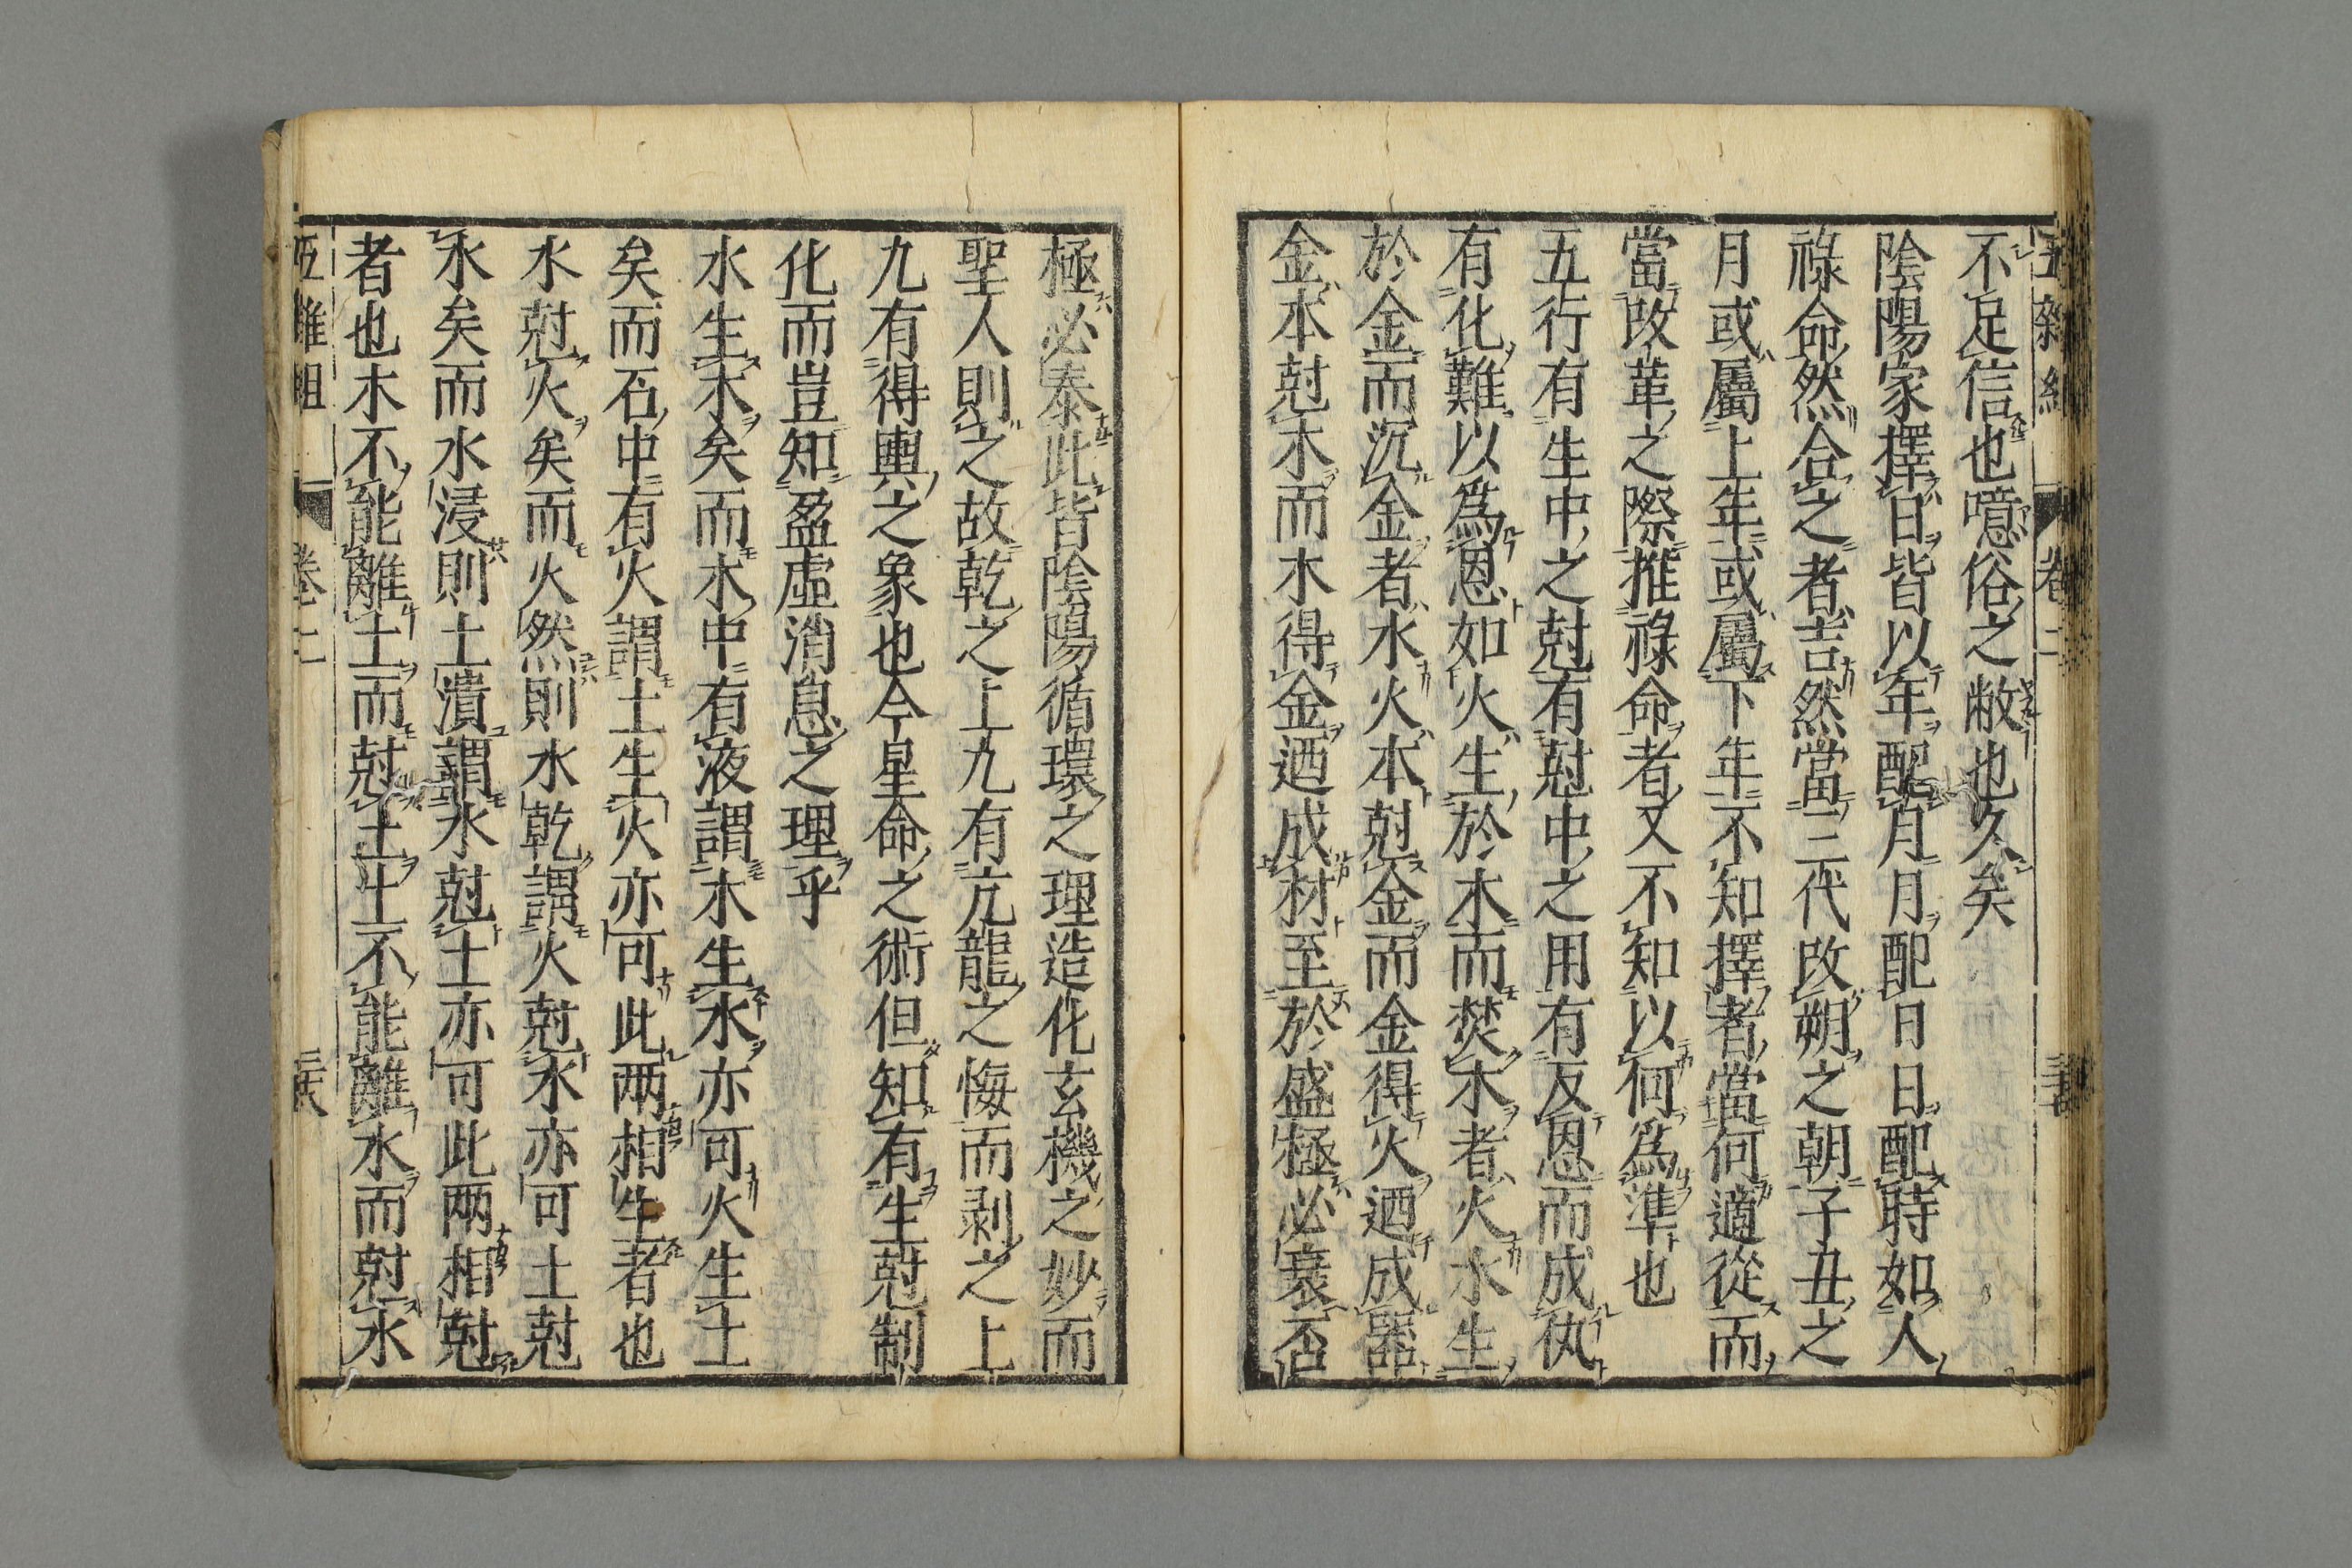 不足信也噫俗之敝也久矣
陰陽家擇日皆以年配月月配日日配時如人
祿命然合之者吉然當三代改朔之朝子丑之
月或屬上年或屬下年不知擇者當何適從而
當改革之際推祿命者又不知以何爲準也
五行有生中之尅有尅中之用有反恩而成仇
有化難以爲恩如火生於木而焚木者火水生
於金而沉金者水火本尅金而金得火迺成器
金本尅木而木得金迺成材至於盛極必衰否
極必泰此皆陰陽循環之理造化玄機之妙而
聖人則之故乾之上九有亢龍之悔而剥之上
九有得輿之象也今星命之術但知有生尅制
化而豈知盈虛消息之理乎
水生木矣而木中有液謂木生水亦可火生土
矣而石中有火謂土生火亦可此两相生者也
水尅火矣而火然則水乾謂火尅水亦可土尅
水矣而水浸則土潰謂水尅土亦可此两相尅
者也木不能離土而尅土土不能離水而尅水
五雜組 卷二